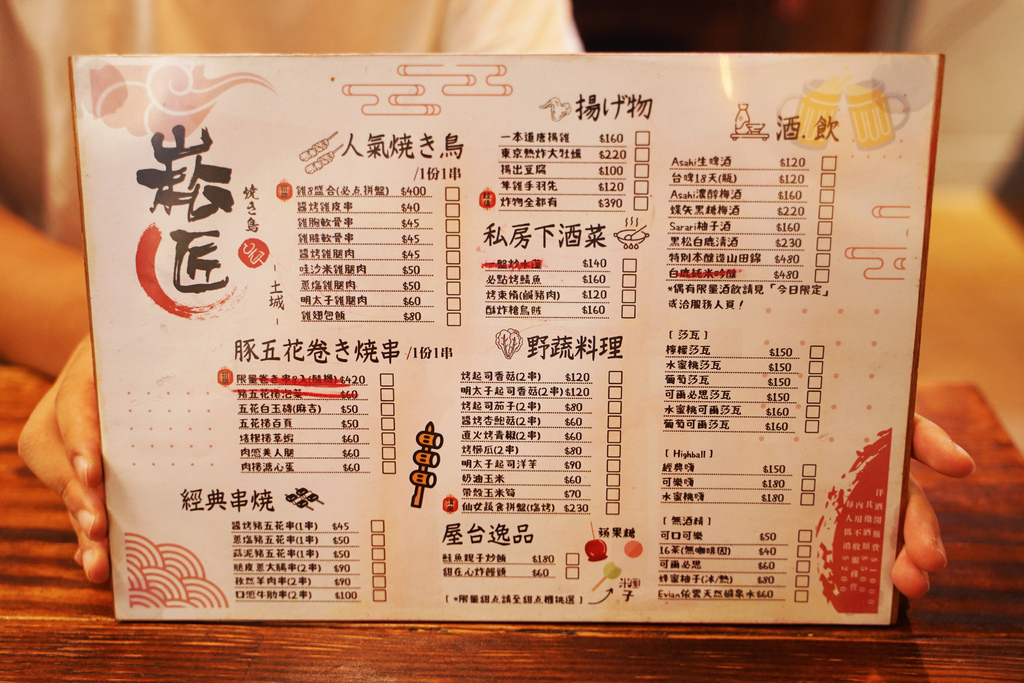 崧匠
燒き鳥
土城
人氣燒き鳥
/1份1串
雞8盛合(必点拼盤) $400
醬烤雞皮串 $40
雞胸軟骨串 $45
雞膝軟骨串 $45
醬烤雞腿肉 $50
哇沙米雞腿肉 $50
蔥塩雞腿肉 $50
明太子雞腿肉 $60
雞翅包飯 $80
豚五花卷き燒串 /1份1串
$420
豬五花捲泡菜 $60
五花白玉磚(麻吉) $50
五花捲百頁 $50
豬樑捲草蝦 $60
肉慾美人腿 $60
肉捲溏心蛋 $60
經典串燒
醬烤豬五花串(1串) $45
蔥塩豬五花串(1串) $50
蒜泥豬五花串(1串) $50
脆皮蔥大腸串(2串) $90
孜然羊肉串(2串) $90
口慾牛肋串(2串) $100
揚げ物
一本道唐揚雞 $160
東京熱炸大牡蠣 $220
揚出豆腐 $100
隼雞手羽先 $120
炸物全都有 $390
私房下酒菜
一盤炒水蓮 $140
必點烤鯖魚 $160
烤東脩(鹹豬肉) $120
酥炸槍烏賊 $160
野蔬料理
烤起司香菇(2串) $120
明太子起司香菇(2串) $120
烤起司茄子(2串) $80
醬烤杏鮑菇(2串) $60
直火烤青椒(2串) $60
烤櫛瓜(2串) $80
明太子起司洋芋 $90
奶油玉米 $60
帶殼玉米筍 $70
仙女蔬食拼盤(6串) $230
屋台逸品
鮭魚親子炒飯 $180
甜在心炸饅頭 $60
蘋果糖
糰子
[ *限量甜点請至甜点櫃挑選 ]
酒.飲
Asahi生啤酒 $120
台啤18天(瓶) $120
Asahi濃醇梅酒 $160
蝶矢黑糖梅酒 $220
Sarari柚子酒 $160
黑松白鹿清酒 $230
特別本釀造山田錦 $480
白鹿純米吟釀 $480
*偶有限量酒飲請見「今日限定」
或洽服務人員!
[ 沙瓦 ]
檸檬莎瓦 $150
水蜜桃莎瓦 $150
葡萄莎瓦 $150
可爾必思莎瓦 $150
水蜜桃可爾莎瓦 $160
葡萄可爾莎瓦 $160
[ Highball ]
經典嗨 $150
可樂嗨 $180
水蜜桃嗨 $180
[ 無酒精 ]
可口可樂 $50
16茶(無咖啡因) $40
可爾必思 $60
蜂蜜柚子(冰/熱) $80
Evian依雲天然礦泉水 $60
每人低消$200